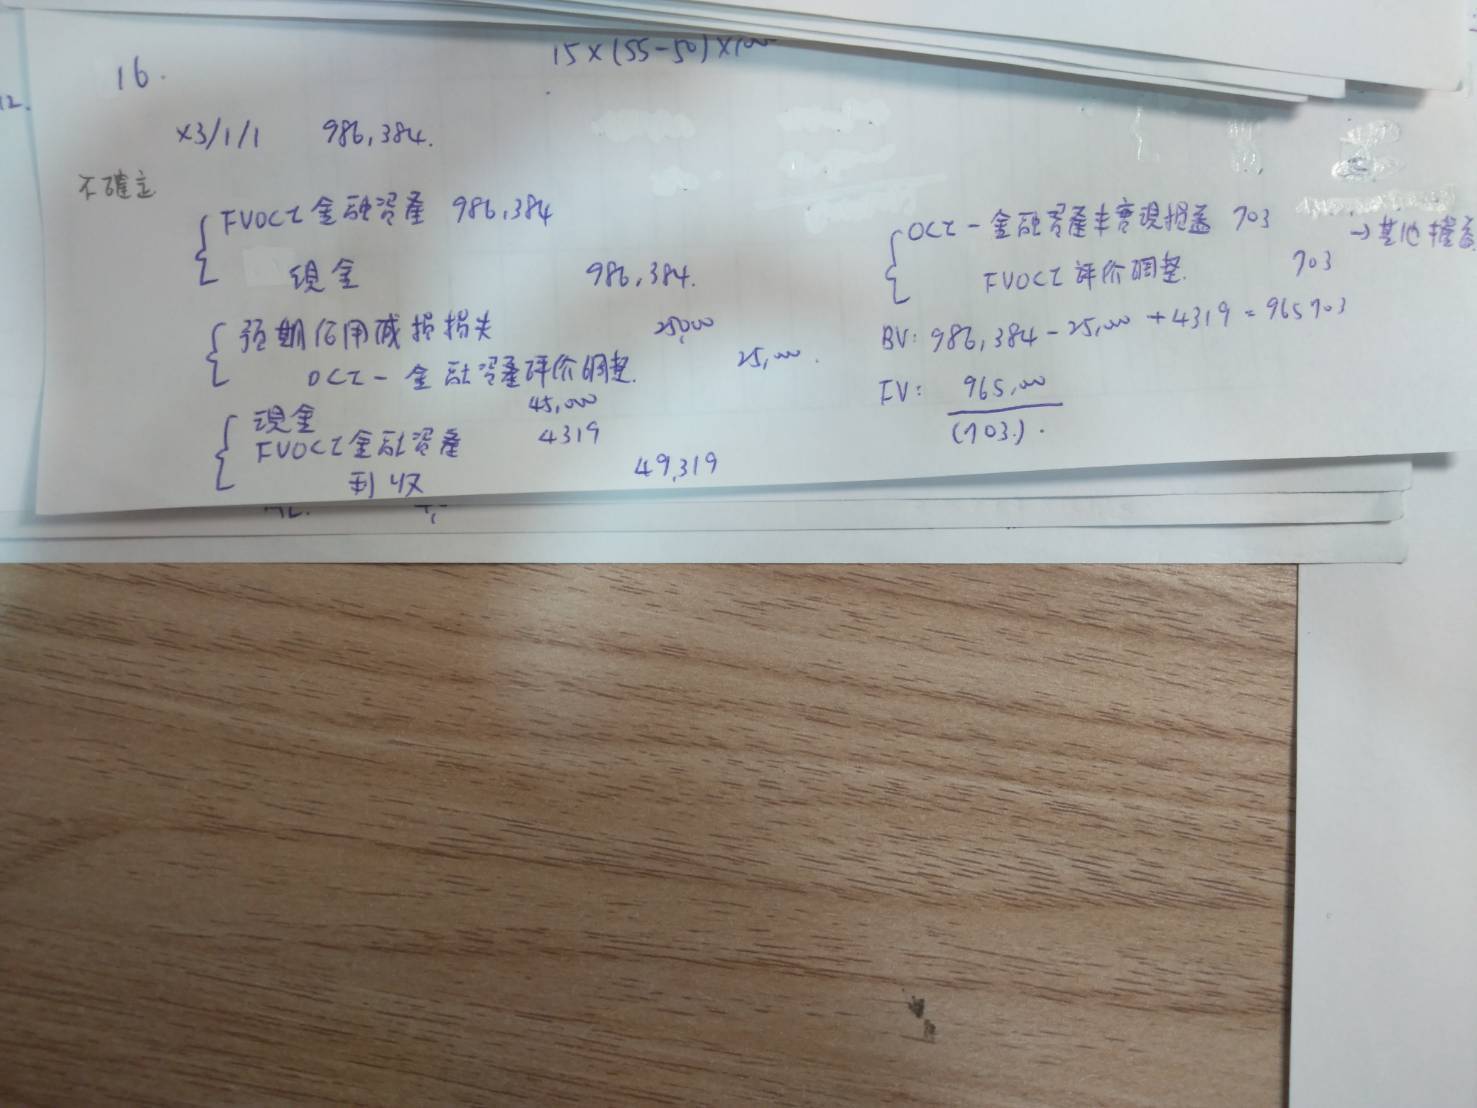 15×(55-50)×100
12.
16.
×3/1/1 986,384.
不確定
FVOCI 金融資產 986,384
現金 986,384.
預期信用減損損失 25,000
OCI - 金融資產評价調整. 25,000.
現金 45,000
FVOCI 金融資產 4319
利收 49,319
OCI - 金融資產未實現損益 703 → 其他損益
FVOCI 評价調整. 703
BV: 986,384 - 25,000 + 4319 = 965703
FV: 965,000
(703).